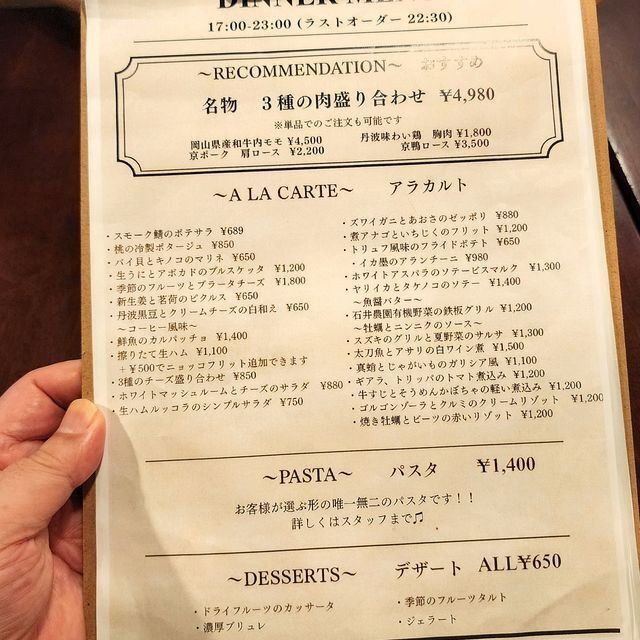 DINNER MEN
17:00-23:00 (ラストオーダー 22:30)
〜RECOMMENDATION〜 おすすめ
名物 3種の肉盛り合わせ ¥4,980
※単品でのご注文も可能です
岡山県産和牛内モモ ¥4,500 丹波味わい鶏 胸肉 ¥1,800
京ポーク 肩ロース ¥2,200 京鴨ロース ¥3,500
〜A LA CARTE〜 アラカルト
・スモーク鯖のポテサラ ¥689
・桃の冷製ポタージュ ¥850
・バイ貝とキノコのマリネ ¥650
・生うにとアボカドのブルスケッタ ¥1,200
・季節のフルーツとブラータチーズ ¥1,800
・新生姜と茗荷のピクルス ¥650
・丹波黒豆とクリームチーズの白和え ¥650
〜コーヒー風味〜
・鮮魚のカルパッチョ ¥1,400
・擦りたて生ハム ¥1,100
+¥500でニョッコフリット追加できます
・3種のチーズ盛り合わせ ¥850
・ホワイトマッシュルームとチーズのサラダ ¥880
・生ハムルッコラのシンプルサラダ ¥750
・ズワイガニとあおさのゼッポリ ¥880
・煮アナゴといちじくのフリット ¥1,200
・トリュフ風味のフライドポテト ¥650
・イカ墨のアランチーニ ¥980
・ホワイトアスパラのソテービスマルク ¥1,300
・ヤリイカとタケノコのソテー ¥1,400
〜魚醤バター〜
・石井農園有機野菜の鉄板グリル ¥1,200
〜牡蠣とニンニクのソース〜
・スズキのグリルと夏野菜のサルサ ¥1,300
・太刀魚とアサリの白ワイン煮 ¥1,500
・真蛸とじゃがいものガリシア風 ¥1,100
・ギアラ、トリッパのトマト煮込み ¥1,200
・牛すじとそうめんかぼちゃの軽い煮込み ¥1,200
・ゴルゴンゾーラとクルミのクリームリゾット ¥1,200
・焼き牡蠣とビーツの赤いリゾット ¥1,200
〜PASTA〜 パスタ ¥1,400
お客様が選ぶ形の唯一無二のパスタです!!
詳しくはスタッフまで♫
〜DESSERTS〜 デザート ALL¥650
・ドライフルーツのカッサータ ・季節のフルーツタルト
・濃厚ブリュレ ・ジェラート